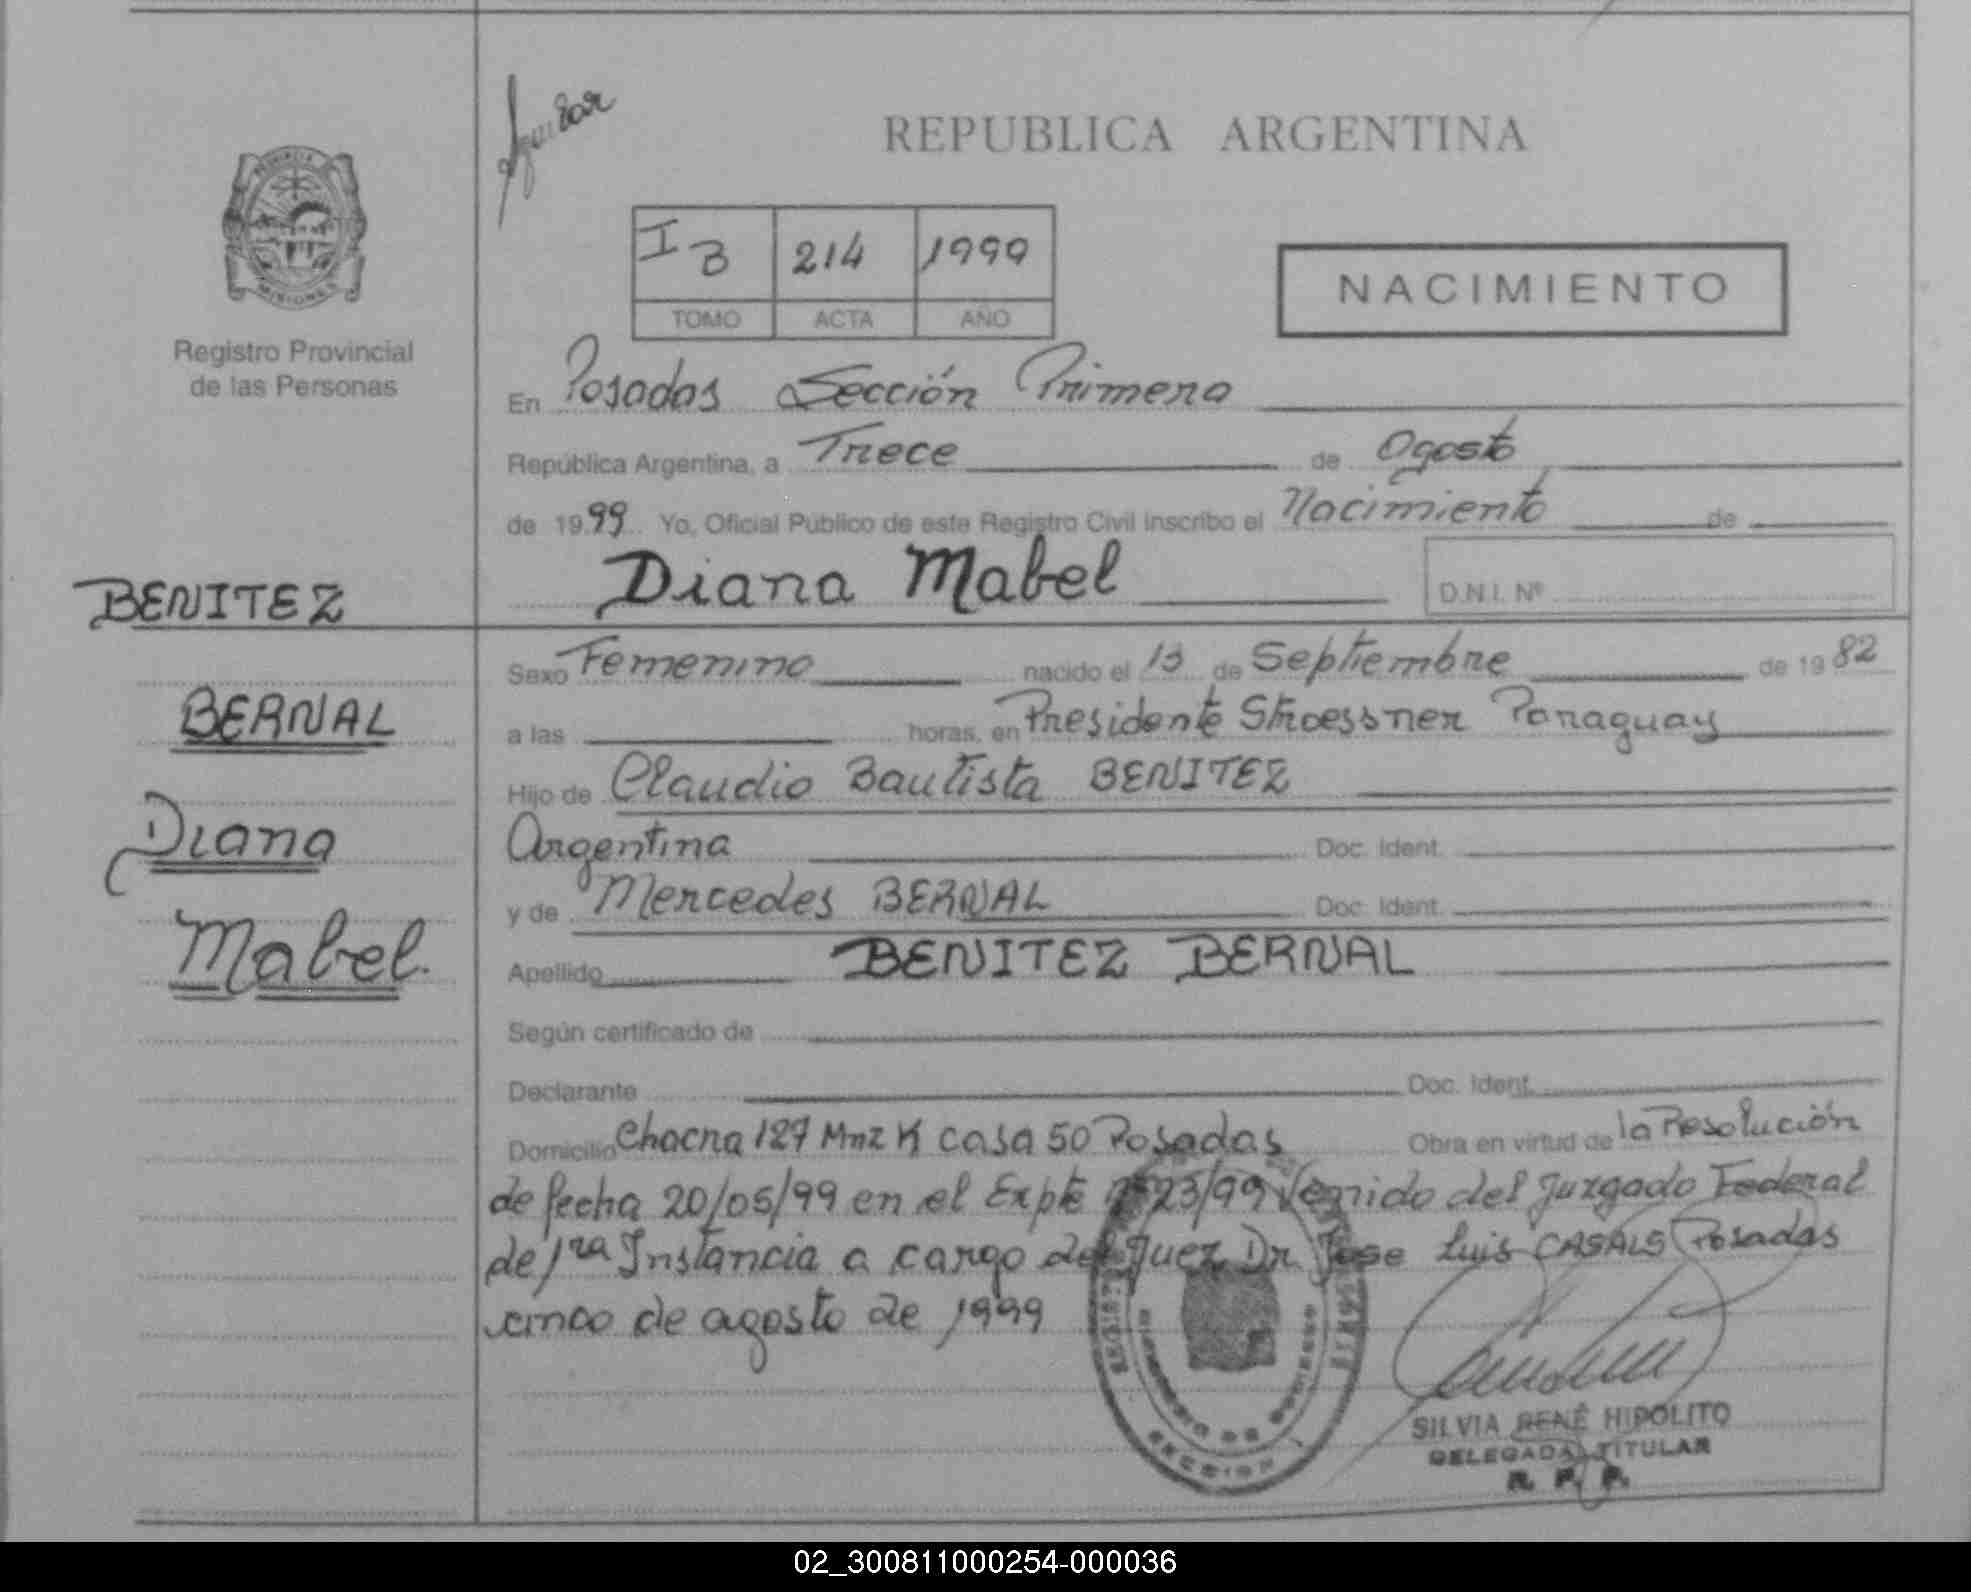 Aguilar
REPUBLICA ARGENTINA
PROVINCIA
MISIONES
Registro Provincial
de las Personas
I B 214 1999
TOMO ACTA AÑO
NACIMIENTO
En Posadas Sección Primera
República Argentina, a Trece de Agosto
de 1999 Yo, Oficial Público de este Registro Civil inscribo el Nacimiento de
Diana Mabel
D.N.I. Nº
BENITEZ
BERNAL
Diana
Mabel.
Sexo Femenino nacido el 13 de Septiembre de 1982
a las horas, en Presidente Stroessner Paraguay
Hijo de Claudio Bautista BENITEZ
Argentina Doc. Ident.
y de Mercedes BERNAL Doc. Ident.
Apellido BENITEZ BERNAL
Según certificado de
Declarante Doc. Ident.
Domicilio Chacra 127 Mnz K casa 50 Posadas Obra en virtud de la Resolución
de fecha 20/05/99 en el Expte 23/99 Venido del Juzgado Federal
de 1ra Instancia a cargo del Juez Dr. Jose Luis CASALS Posadas
cinco de agosto de 1999
SECCION 1
SILVIA RENÉ HIPOLITO
DELEGADA TITULAR
R. P. P.
02_300811000254-000036